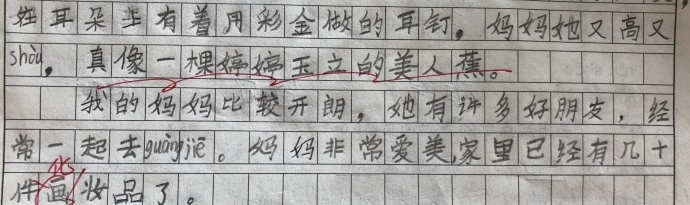 红耳朵上有着用彩金做的耳钉。妈妈她又高又
shòu。真像一棵婷婷玉立的美人蕉。
我的妈妈比较开朗，她有许多好朋友，经
常一起去guàngjiē。妈妈非常爱美,家里已经有几十
件画化妆品了。